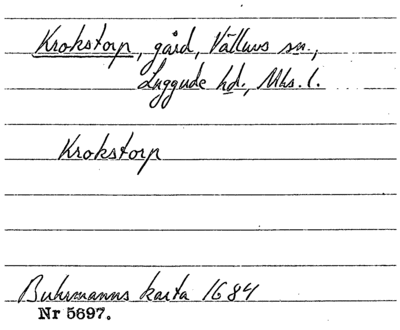 Krokstorp, gård, Välluvs sn.,
Luggude hd., Mhs. l.
Krokstorp
Buhrmanns karta 1684
Nr 5697.